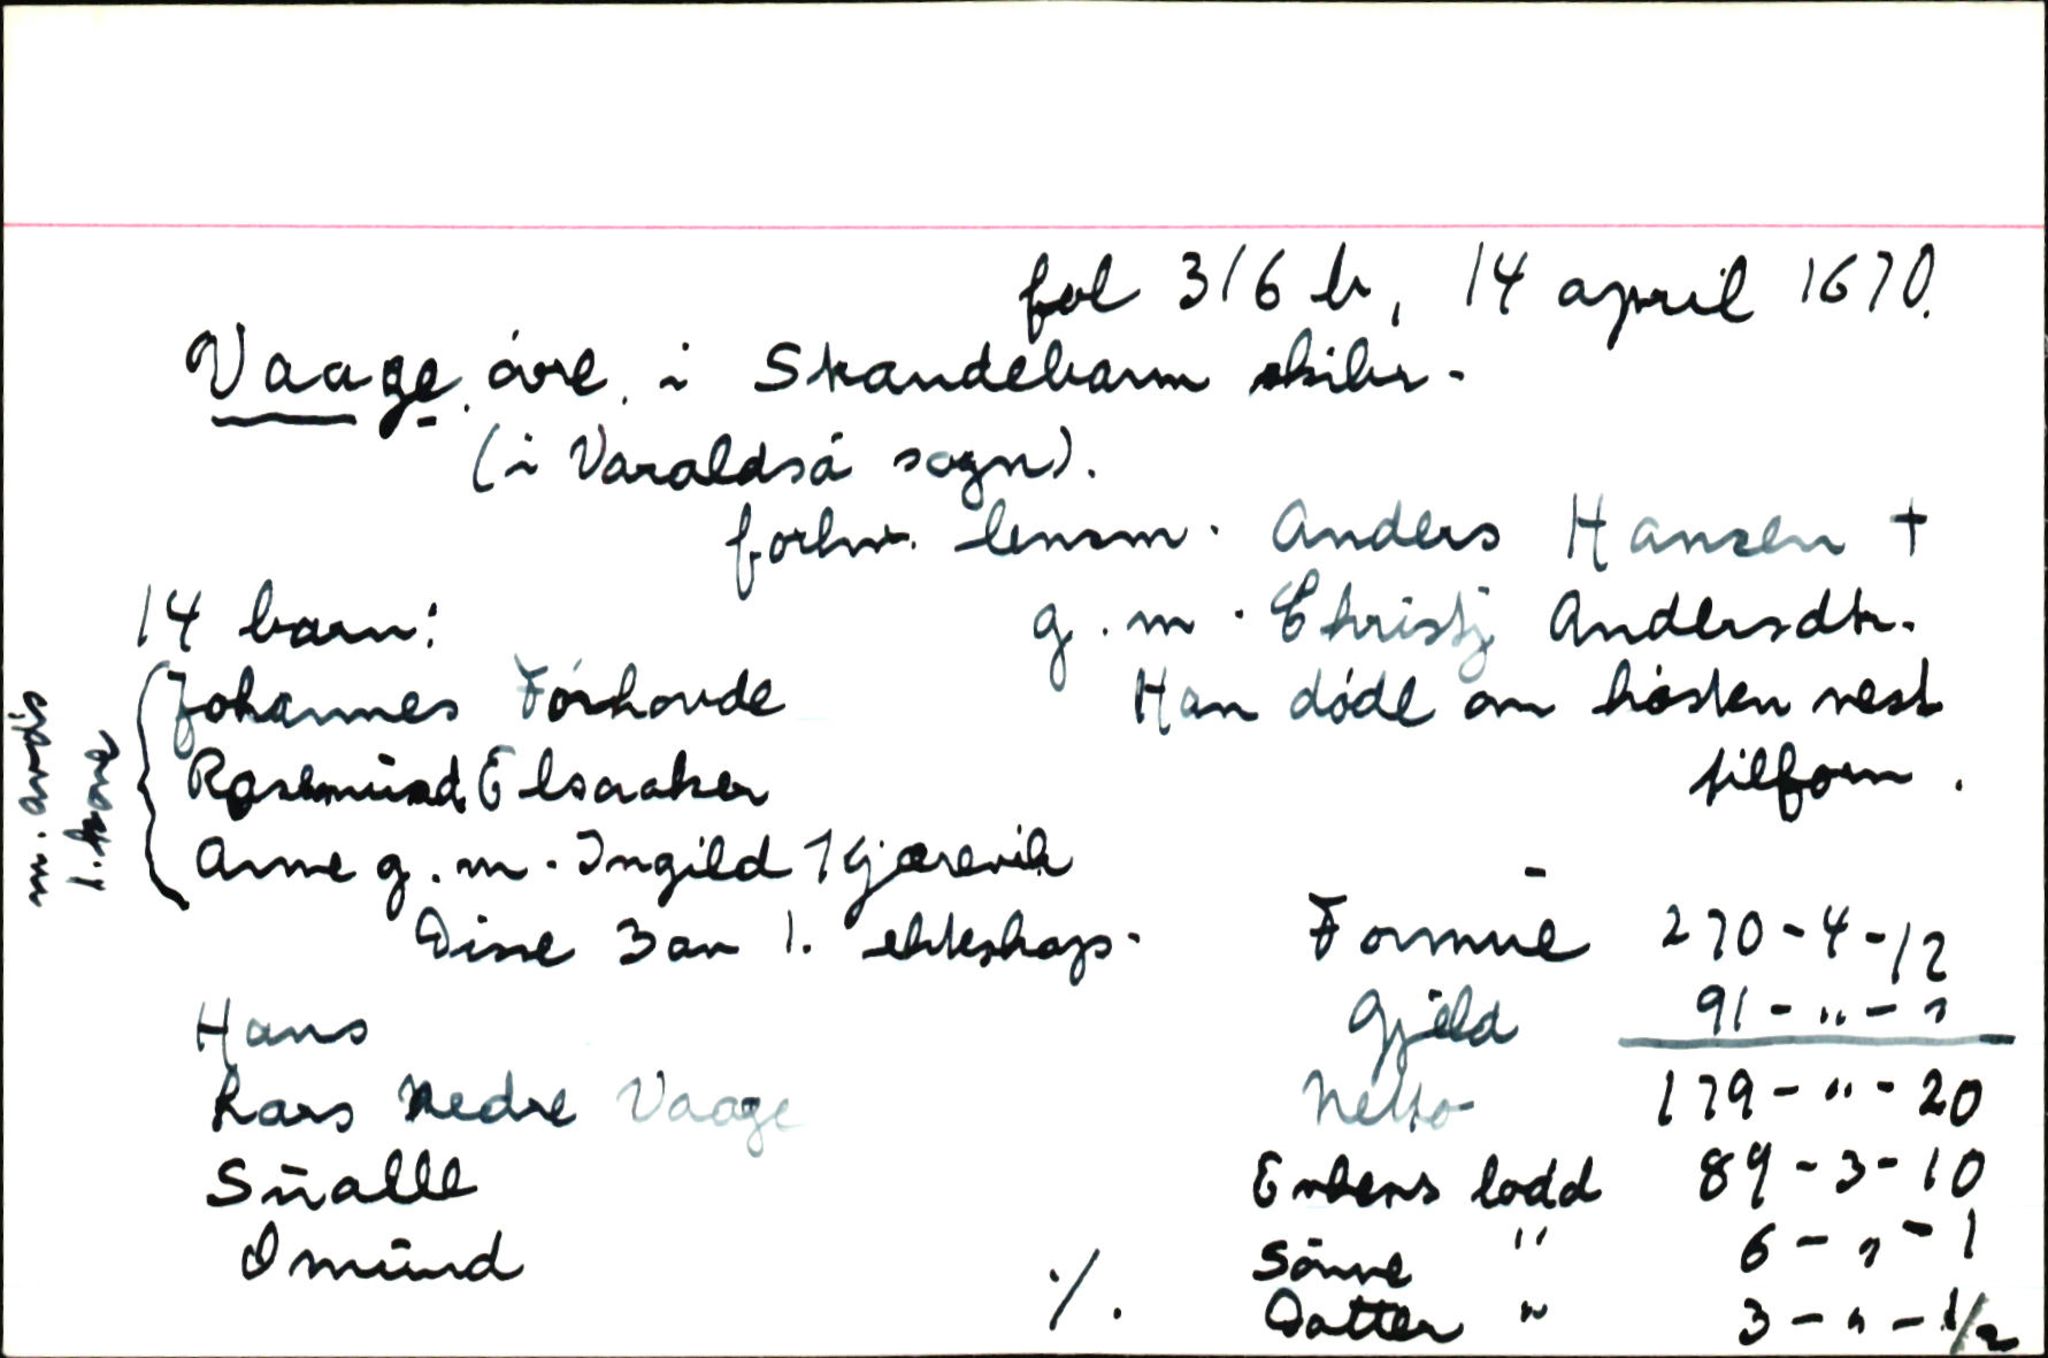 fol 316 b, 14 april 1670.
Vaage övre i Skandebarm skibr.
(i Varaldsö sogn).
forhv. lensm. Anders Hansen †
14 barn:
g. m. Christj Andersdtr.
Johannes Törhovde
Han döde om hösten nest
tilforn.
Rosemund Elsaaker
Arne g. m. Ingild Kjærevik
Disse 3 av 1. ekteskap.
m. avdö
1. kone
Hans
Lars Nedre Vaage
Siualle
Omund
Formue 270-4-12
Gjeld 91-"-"
Netto 179-"-20
Enkens lodd 89-3-10
Sönne " 6-"-1
Datter " 3-"-1/2
./.